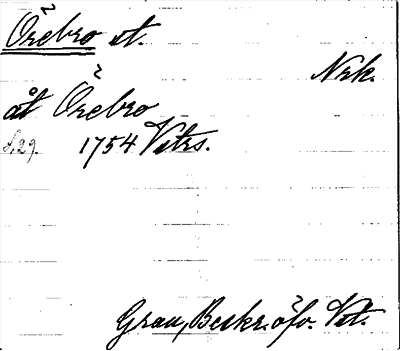 Örebro st.
Nrk.
åt Örebro
s.29. 1754 Vstrs.
Grau, Beskr. öfv. Vst.